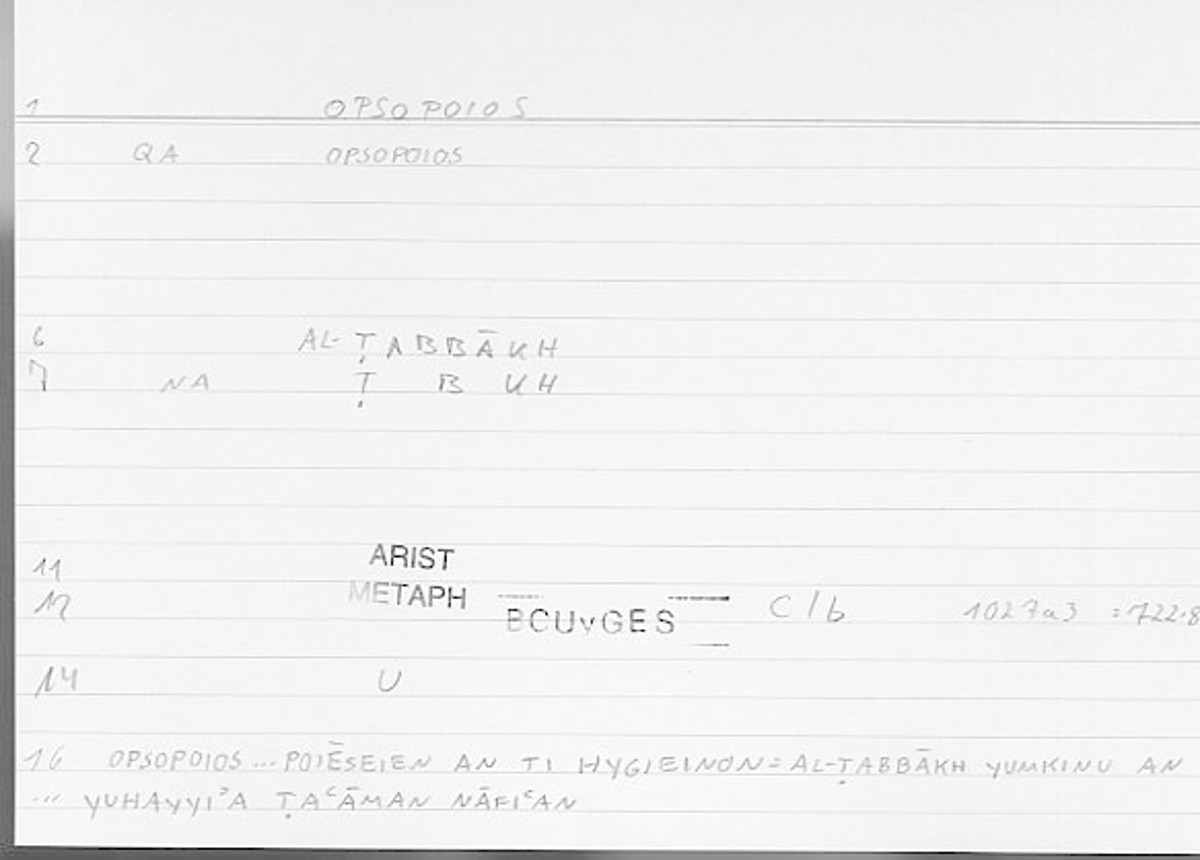 1 OPSOPOIOS
2 QA OPSOPOIOS
6 AL-ṬABBĀKH
7 NA Ṭ B KH
11 ARIST
12 METAPH BOUyGES C/b 1027a3 =722.8
14 U
16 OPSOPOIOS ... POIĒSEIEN AN TI HYGIEINON = AL-ṬABBĀKH YUMKINU AN
... YUHAYYIʾA ṬAʿĀMAN NĀFIʿAN